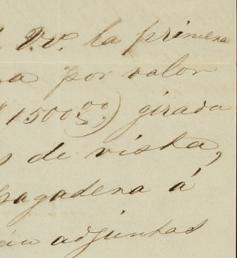 V.V. la primera
a por valor
1500.00) girada
s de vista,
pagadera á
an adjuntas